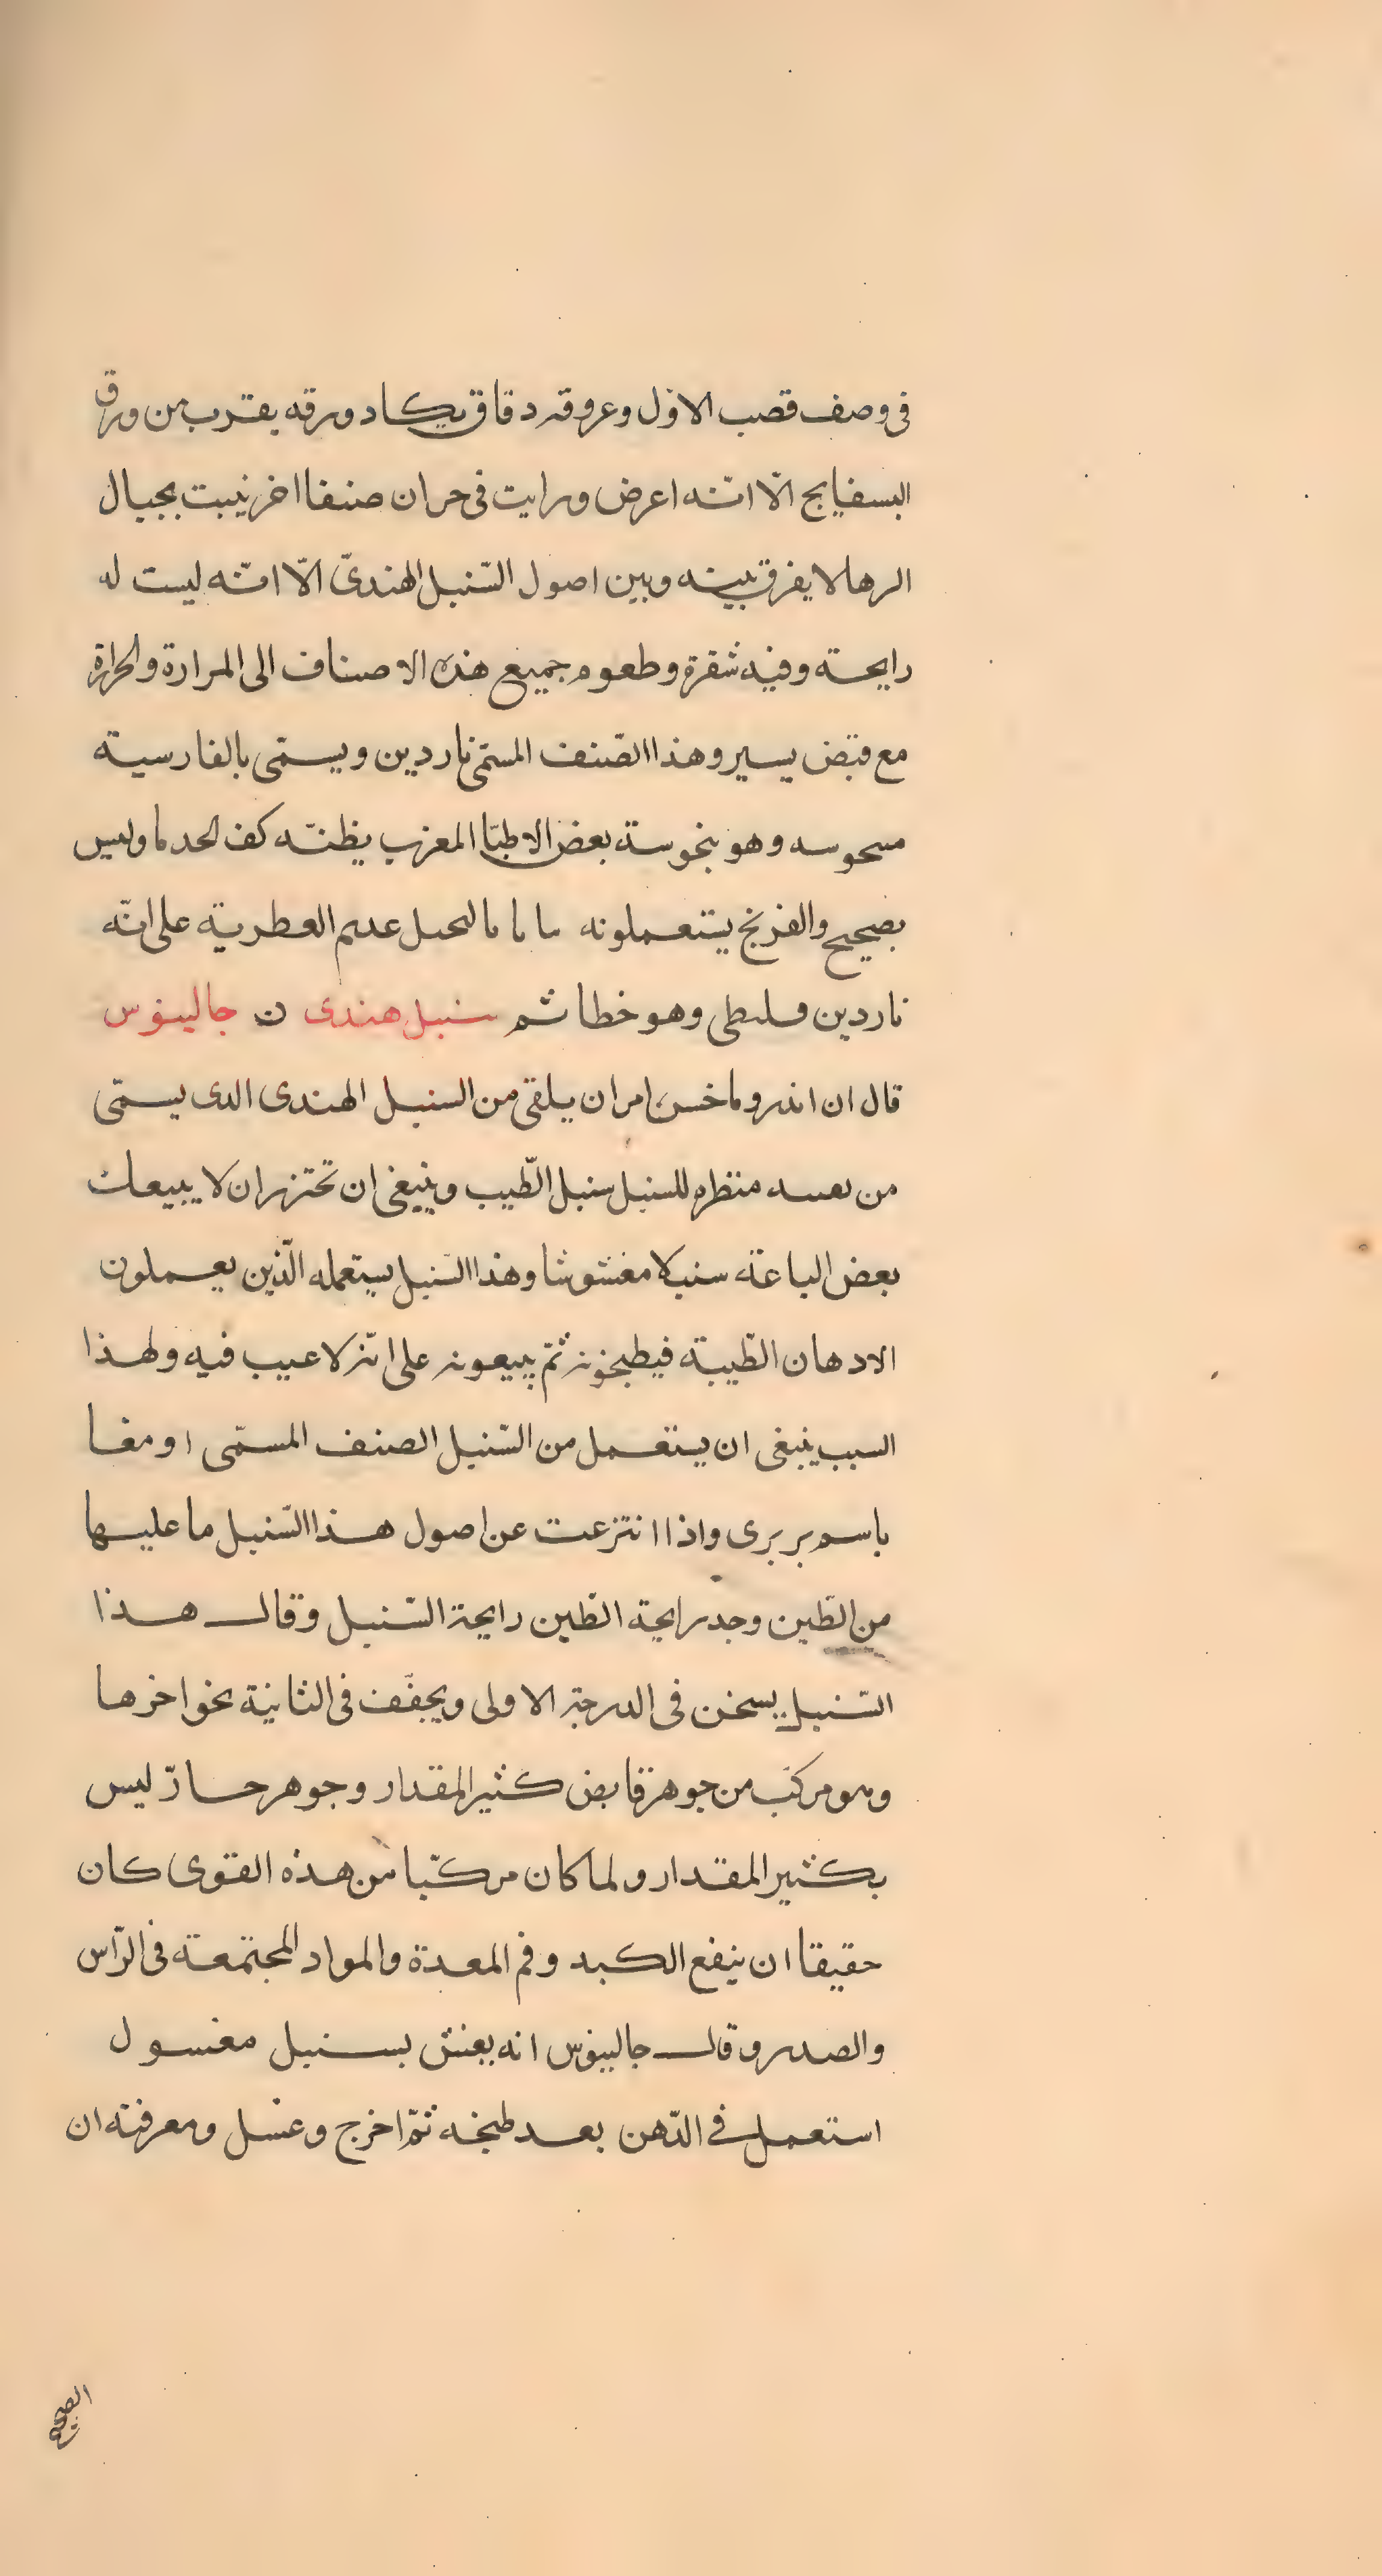 فى وصف قصب الاوّل وعروقه دقاق يكاد ورقه يقرب من ورق
البسفايج الّا انّه اعرض ورايت فى حران صنفا اخر ينبت بجبال
الرها لا يفرق بينه وبين اصول السّنبل الهندىّ الّا انّه ليست له
رايحة وفيه شقرة وطعوم جميع هذه الاصناف الى المرارة والحرارة
مع قبض يسير وهذا الصّنف المسمّى ناردين ويسمّى بالفارسية
مسحوسه وهو بنحوسة بعض الاطبّا المغرب يظنّه كف لحدما وليس
بصحيح والفرنج يستعملونه عديم العطرية على انّه
ناردين وهو خطا ثم سنبل هندى ن جالينوس
قال ان اندروماخس امر ان يلقى من السنبل الهندى الدى يسمّى
من منظره للسنبل سنبل الطّيب وينبغى ان تحترز ان لا يبيعك
بعض الباعة سنبلا مغشوشا وهذا السّنبل يستعمله الّذين يعملون
الادهان الطّيبة فيطبخونه ثمّ يبيعونه على انّه لا عيب فيه ولهذا
السبب ينبغى ان يستعمل من السّنبل الصنف المسمّى اومغا
باسم بربرى واذا انتزعت عن اصول هذا السّنبل ما عليها
من الطّين وجد رايحة الطّين رايحة السّنبل وقال هذا
السّنبل يسخن فى الدرجة الاولى ويجفّف فى الثانية نحو اخرها
وهو مركّب من جوهر قابض كثير المقدار وجوهر حارّ ليس
بكثير المقدار ولما كان مركّبا من هذه القوى كان
حقيقا ان ينفع الكبد وفم المعدة والمواد المجتمعة فى الرّاس
والصدر وقال جالينوس انه يغش بسنبل مغسول
استعمل فى الدّهن بعد طبخه ثمّ اخرج وغسل ومعرفته ان
الصحيح